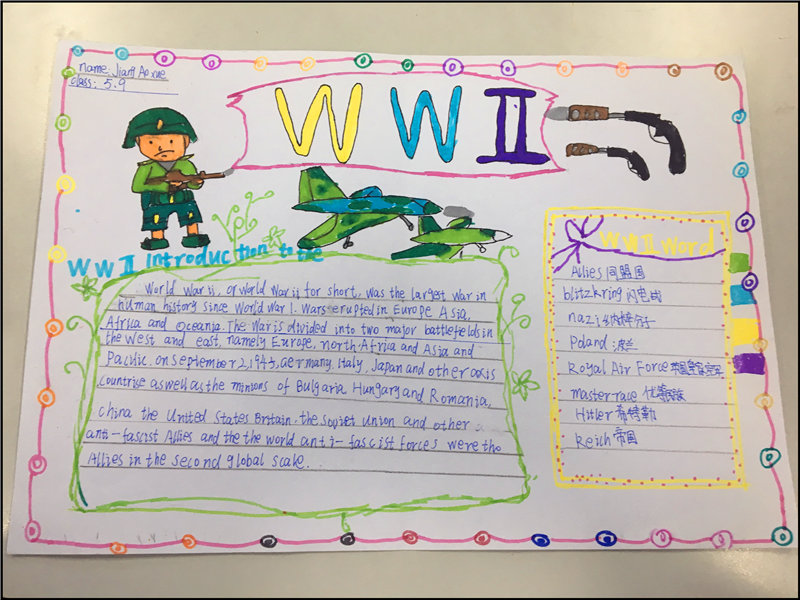 name: Jiang Ao xue
class: 5.9
W W II
W W II Introduction to the
World War ii, or World War ii for short, was the largest war in
human history since World War 1. Wars erupted in Europe Asia,
Africa and Oceania. The War is divided into two major battlefelds in
the West and east, namely Europe, north Africa and Asia and
Pacific. on September 2,1945, Germany, Italy, Japan and other axis
Countrise as well as the minions of Bulgaria Hungary and Romania,
china the United States Britain. the Soviet Union and other
anti-fascist Allies and the the world anti-fascist forces were the
Allies in the second global scale.
WWII Word
Allies 同盟国
blitzkring 闪电战
nazi 纳粹分子
Poland: 波兰
Royal Air Force 英国皇家空军
master-race 优等民族
Hitler 希特勒
Reich 帝国